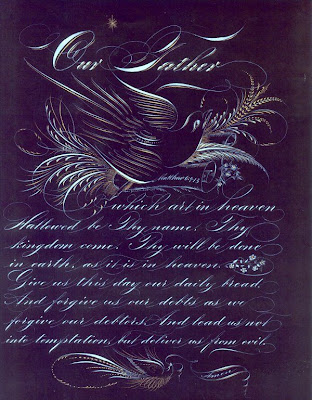 Our Father
Matthew 6:9-13
which art in heaven
Hallowed be Thy name. Thy
kingdom come. Thy will be done
in earth, as it is in heaven.
Give us this day our daily bread.
And forgive us our debts as we
forgive our debtors. And lead us not
into temptation, but deliver us from evil.
Amen